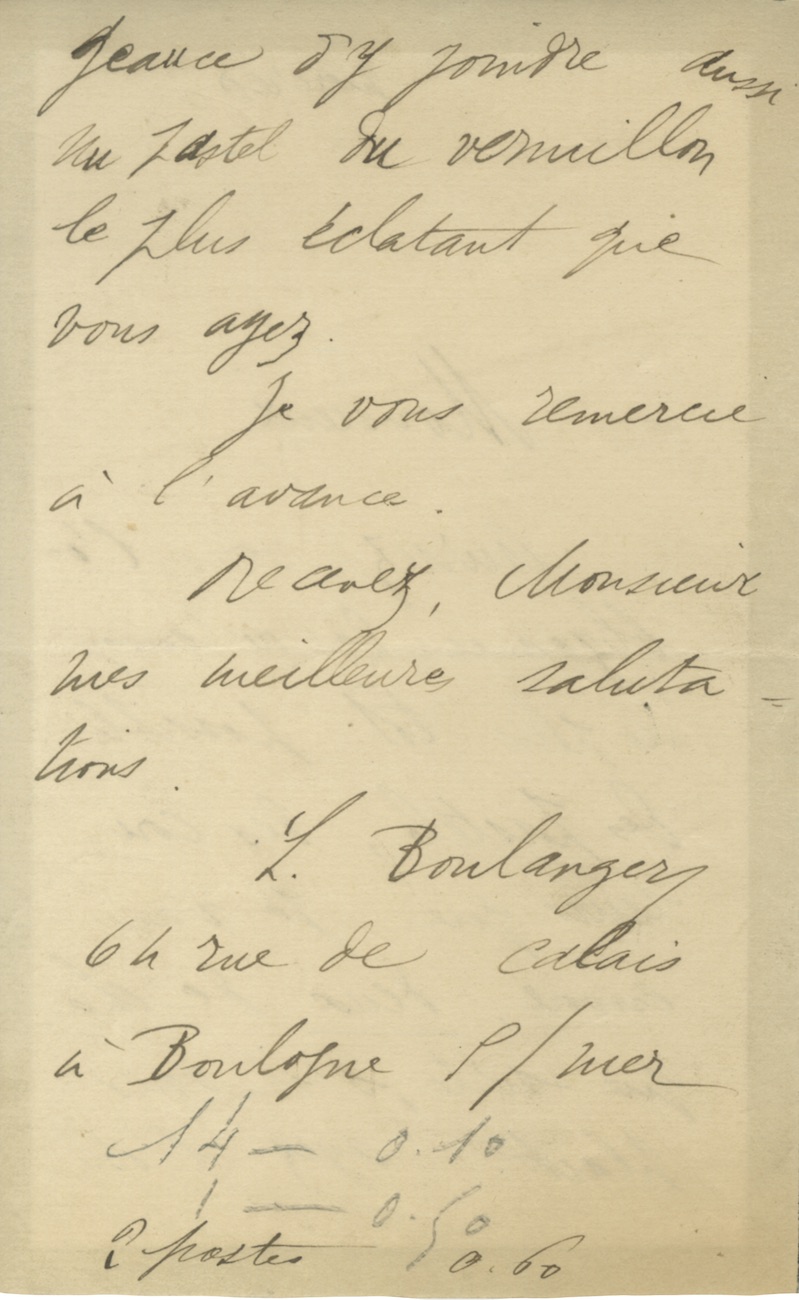 geance d'y joindre aussi
un pastel du vermillon
le plus éclatant que
vous ayez.
Je vous remercie
à l'avance.
Recevez, Monsieur
mes meilleures saluta-
tions.
L. Boulanger
64 rue de Calais
à Boulogne s/mer
14 — 0.10
1 — 0.50
2 postes 0.60